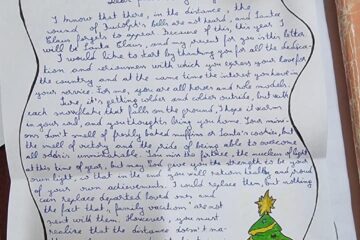 I know that there, in the distance, the
sound of Rudolph's bells are not heard, and Santa
Claus forgets to appear. Because of this, this year I
will be Santa Claus, and my reason for you is this letter.
I would like to start by thanking you for all the dedica-
tion and seriousness with which you express your love for
the country and at the same time the interest you have in
your service. For me, you are all heroes and role models.
Sure, it's getting colder and colder outside, but with
each snowflake that falls on the ground, I hope it warms
in your soul, and your thoughts bring you home. Your missi-
ons don't smell of freshly baked muffins or Santa's cookies, but
the smell of victory and the pride of being able to overcome
all odds is unmistakable. You miss the
at this time of year, but may God give you the strength to be your
own light so that in the end you will return healthy and proud
of your own achievements. I could replace them, but nothing
can replace departed loved ones and
the fact that "family vacations" are not
spent with them. However, you must
realize that the distance doesn't ma-